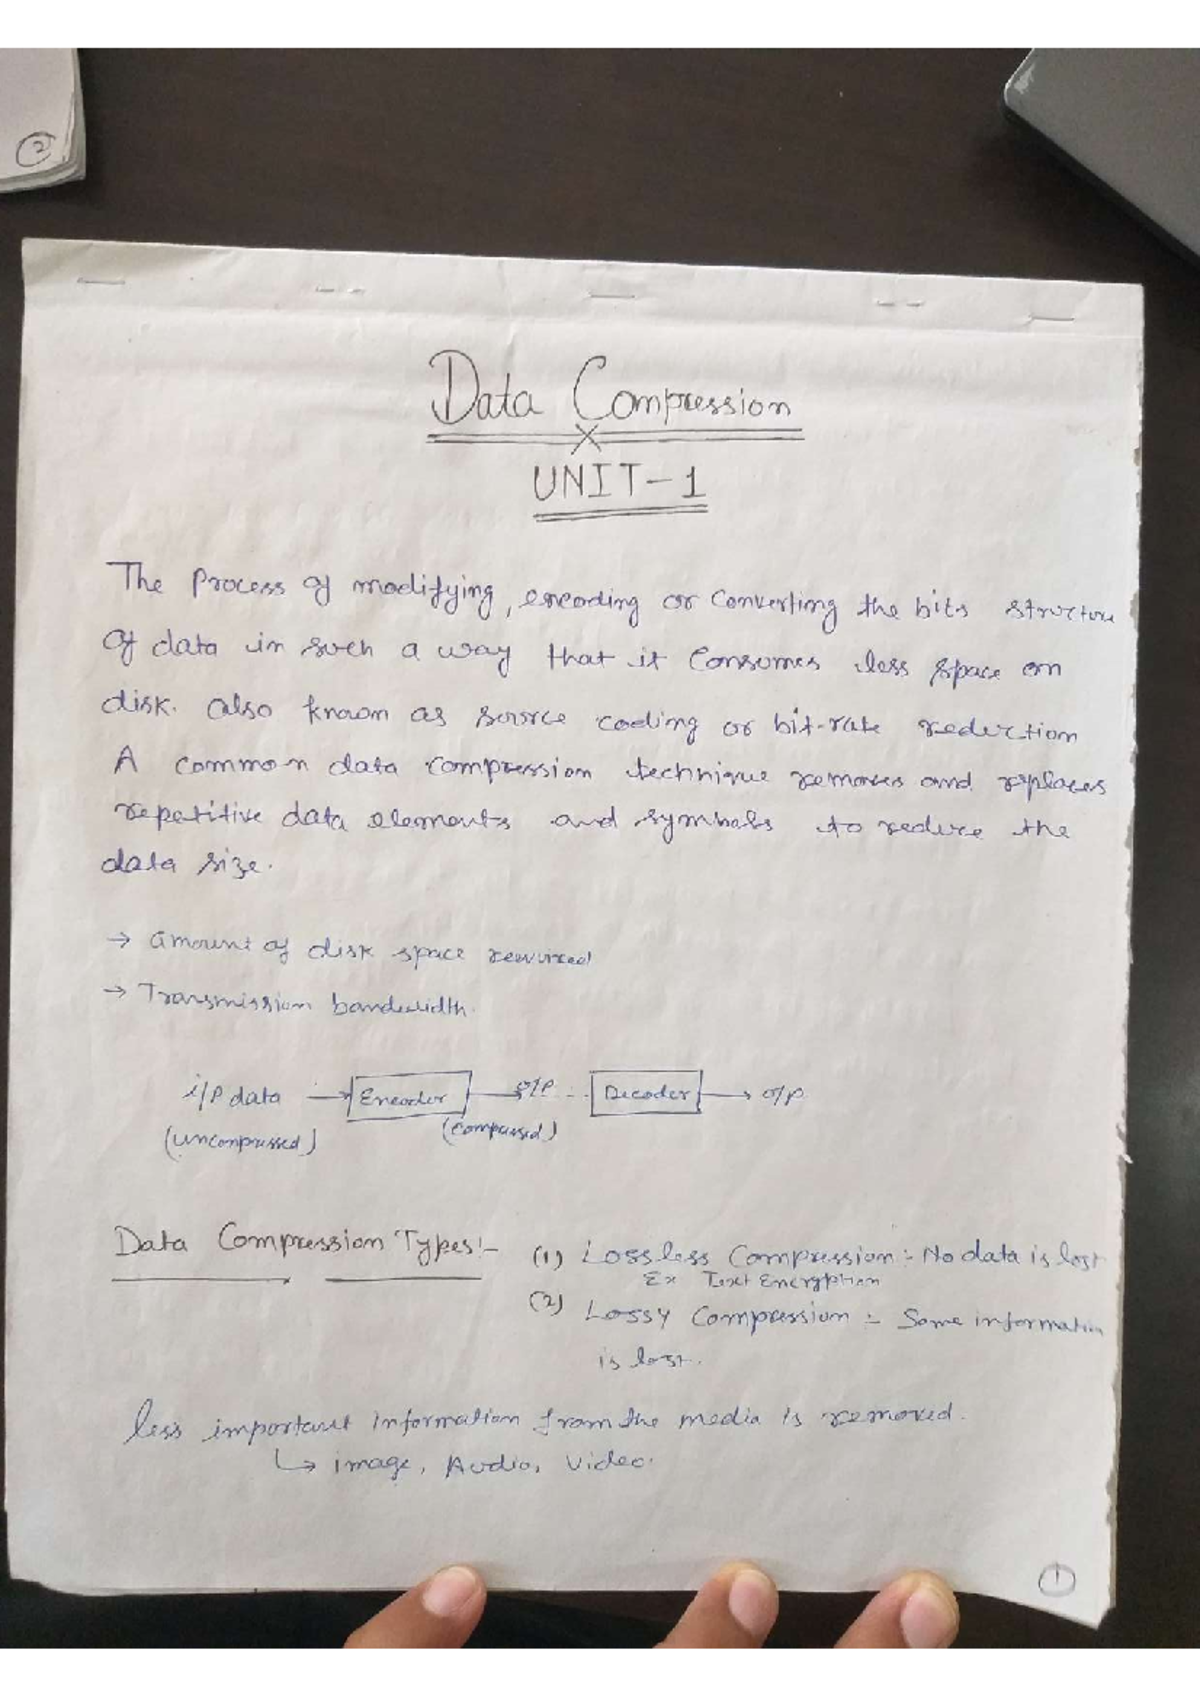 2
Data Compression
UNIT-1
The Process of modifying, encoding or Converting the bits structure
of data in such a way that it Consumes less space on
disk. also known as source coding or bit-rate reduction
A common data compression technique removes and replaces
repetitive data elements and symbols to reduce the
data size.
→ amount of disk space required
→ Transmission bandwidth.
i/p data → Encoder → o/p - - Decoder → o/p
(uncompressed) (compressed)
Data Compression Types:- (1) Lossless Compression:- No data is lost
Ex Text Encryption
(2) Lossy Compression :- Some information
is lost.
less important information from the media is removed.
↳ image, Audio, Video.
1